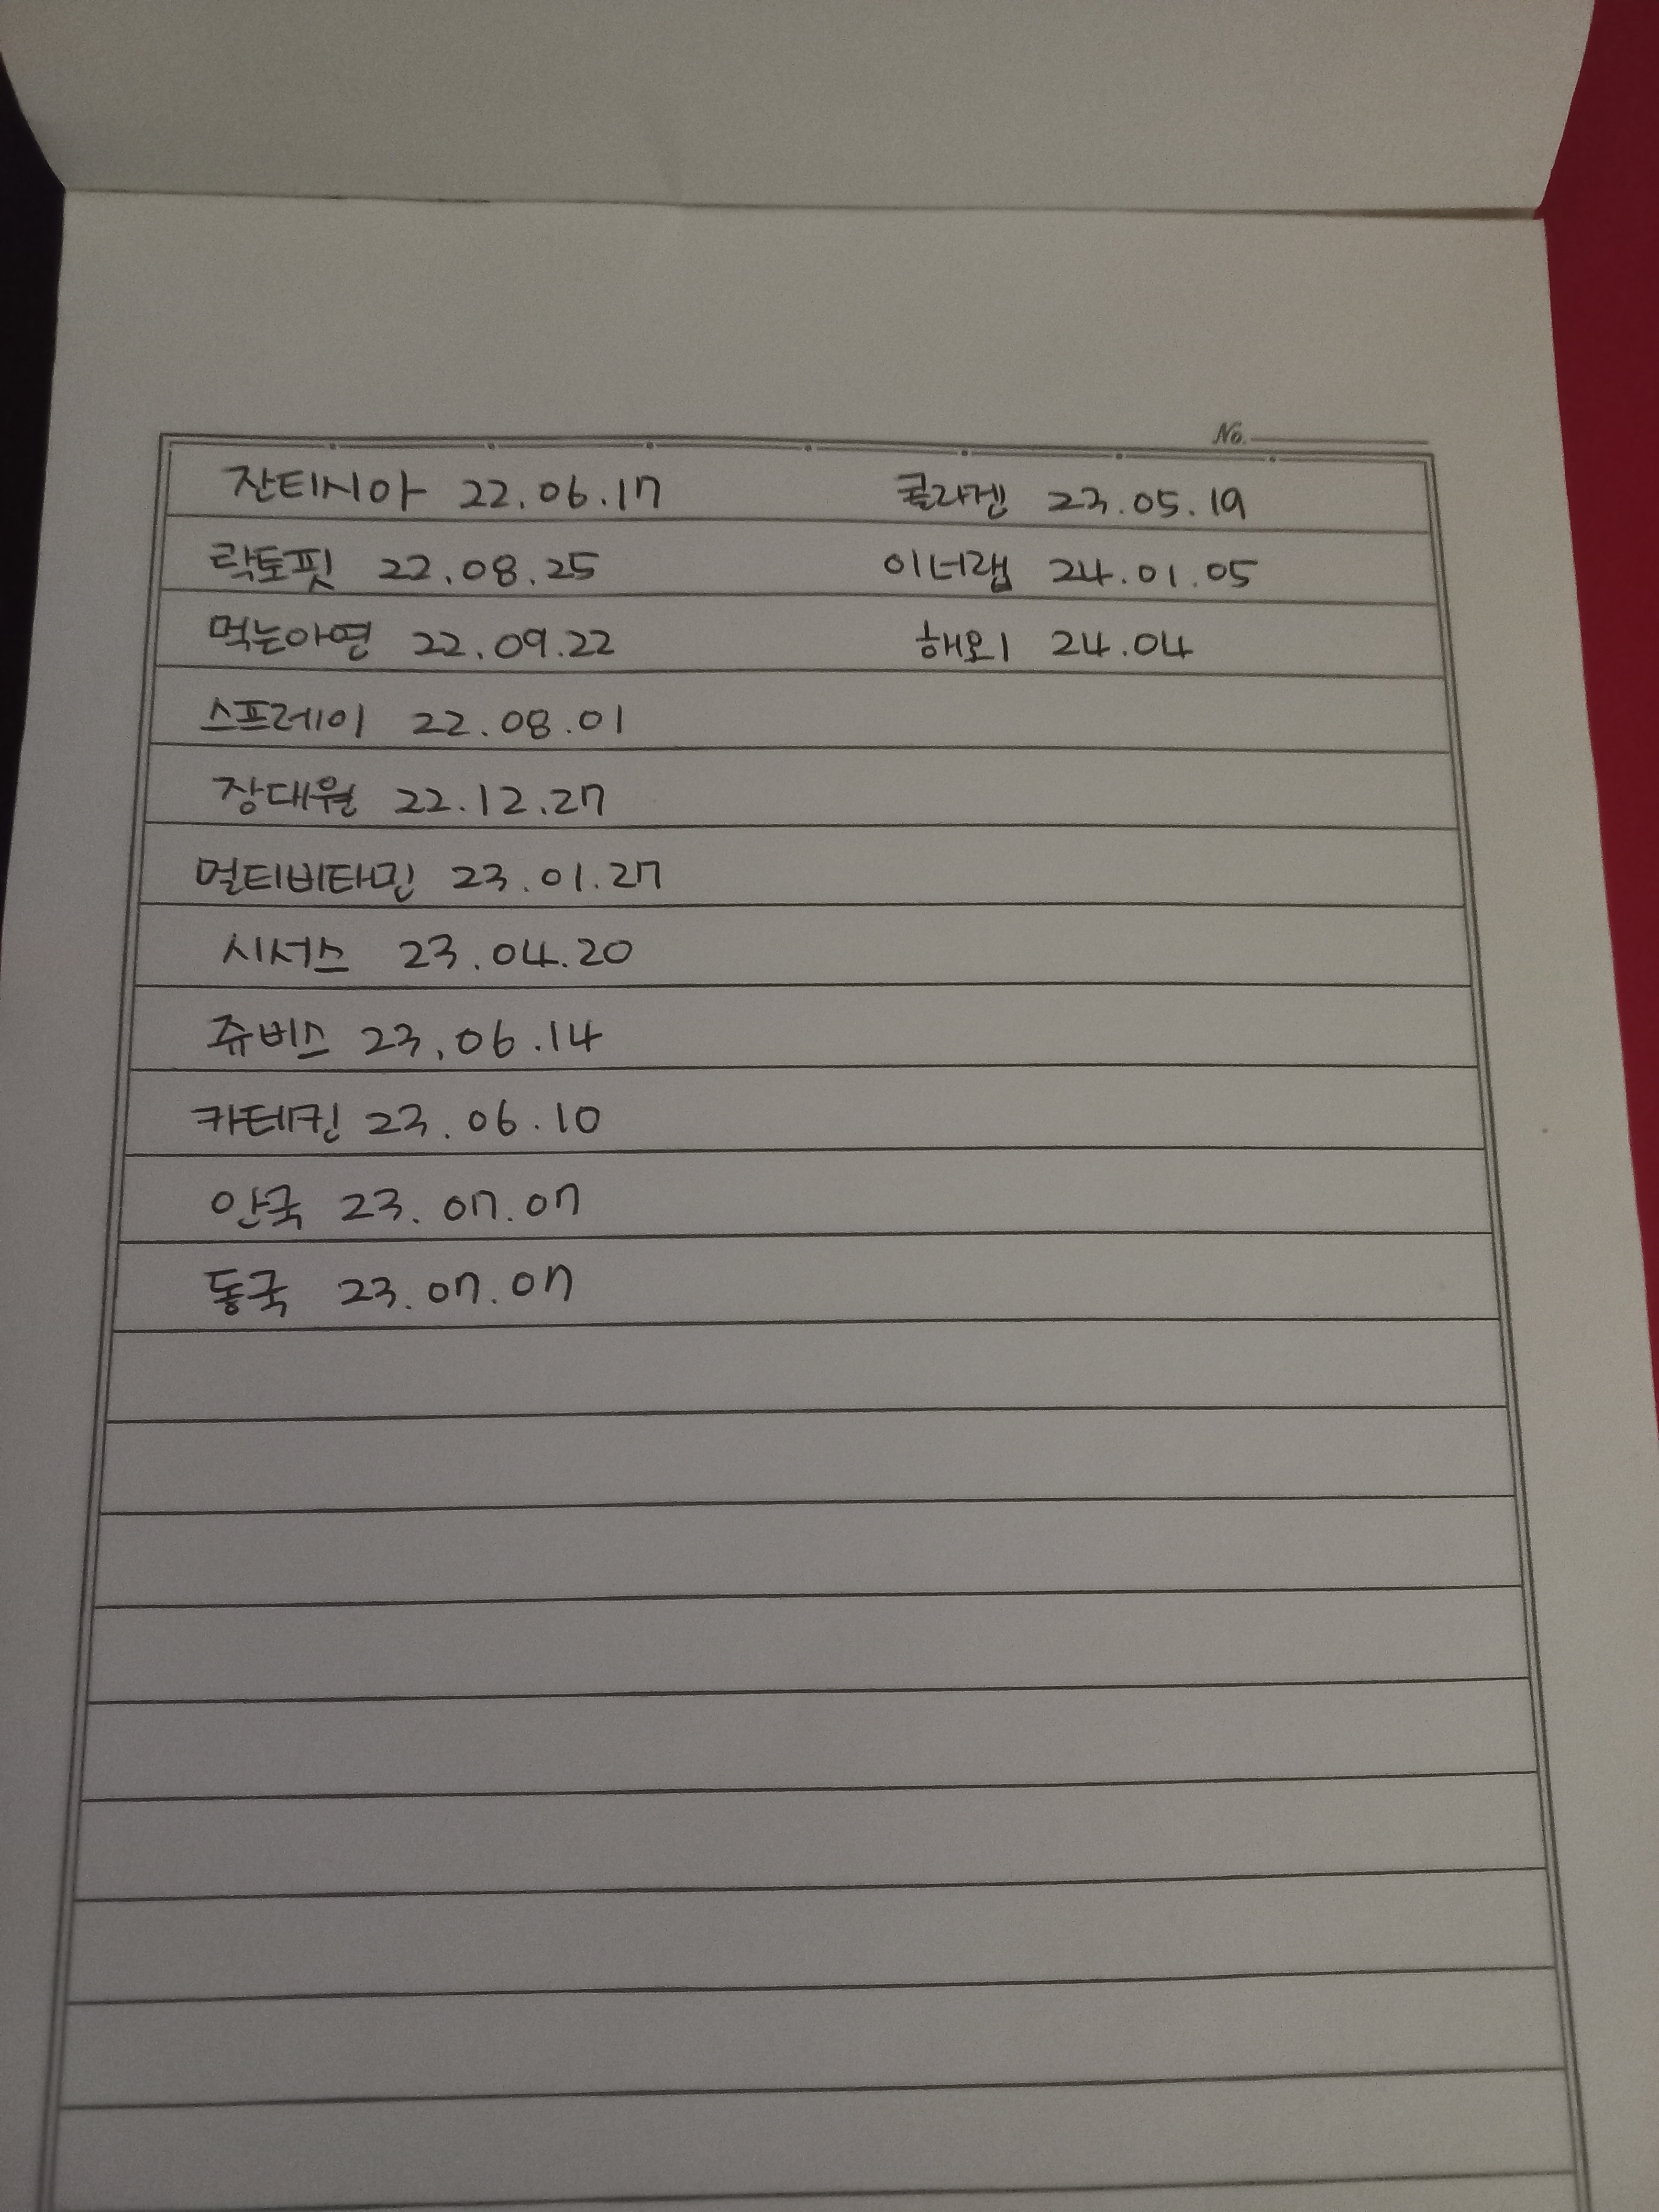 No.
잔티시아 22.06.17 콜라겐 23.05.19
락토핏 22.08.25 이너랩 24.01.05
먹는아연 22.09.22 해외 24.04
스프레이 22.08.01
장대원 22.12.27
멀티비타민 23.01.27
시서스 23.04.20
쥬비스 23.06.14
카테킨 23.06.10
안국 23.07.07
동국 23.07.07